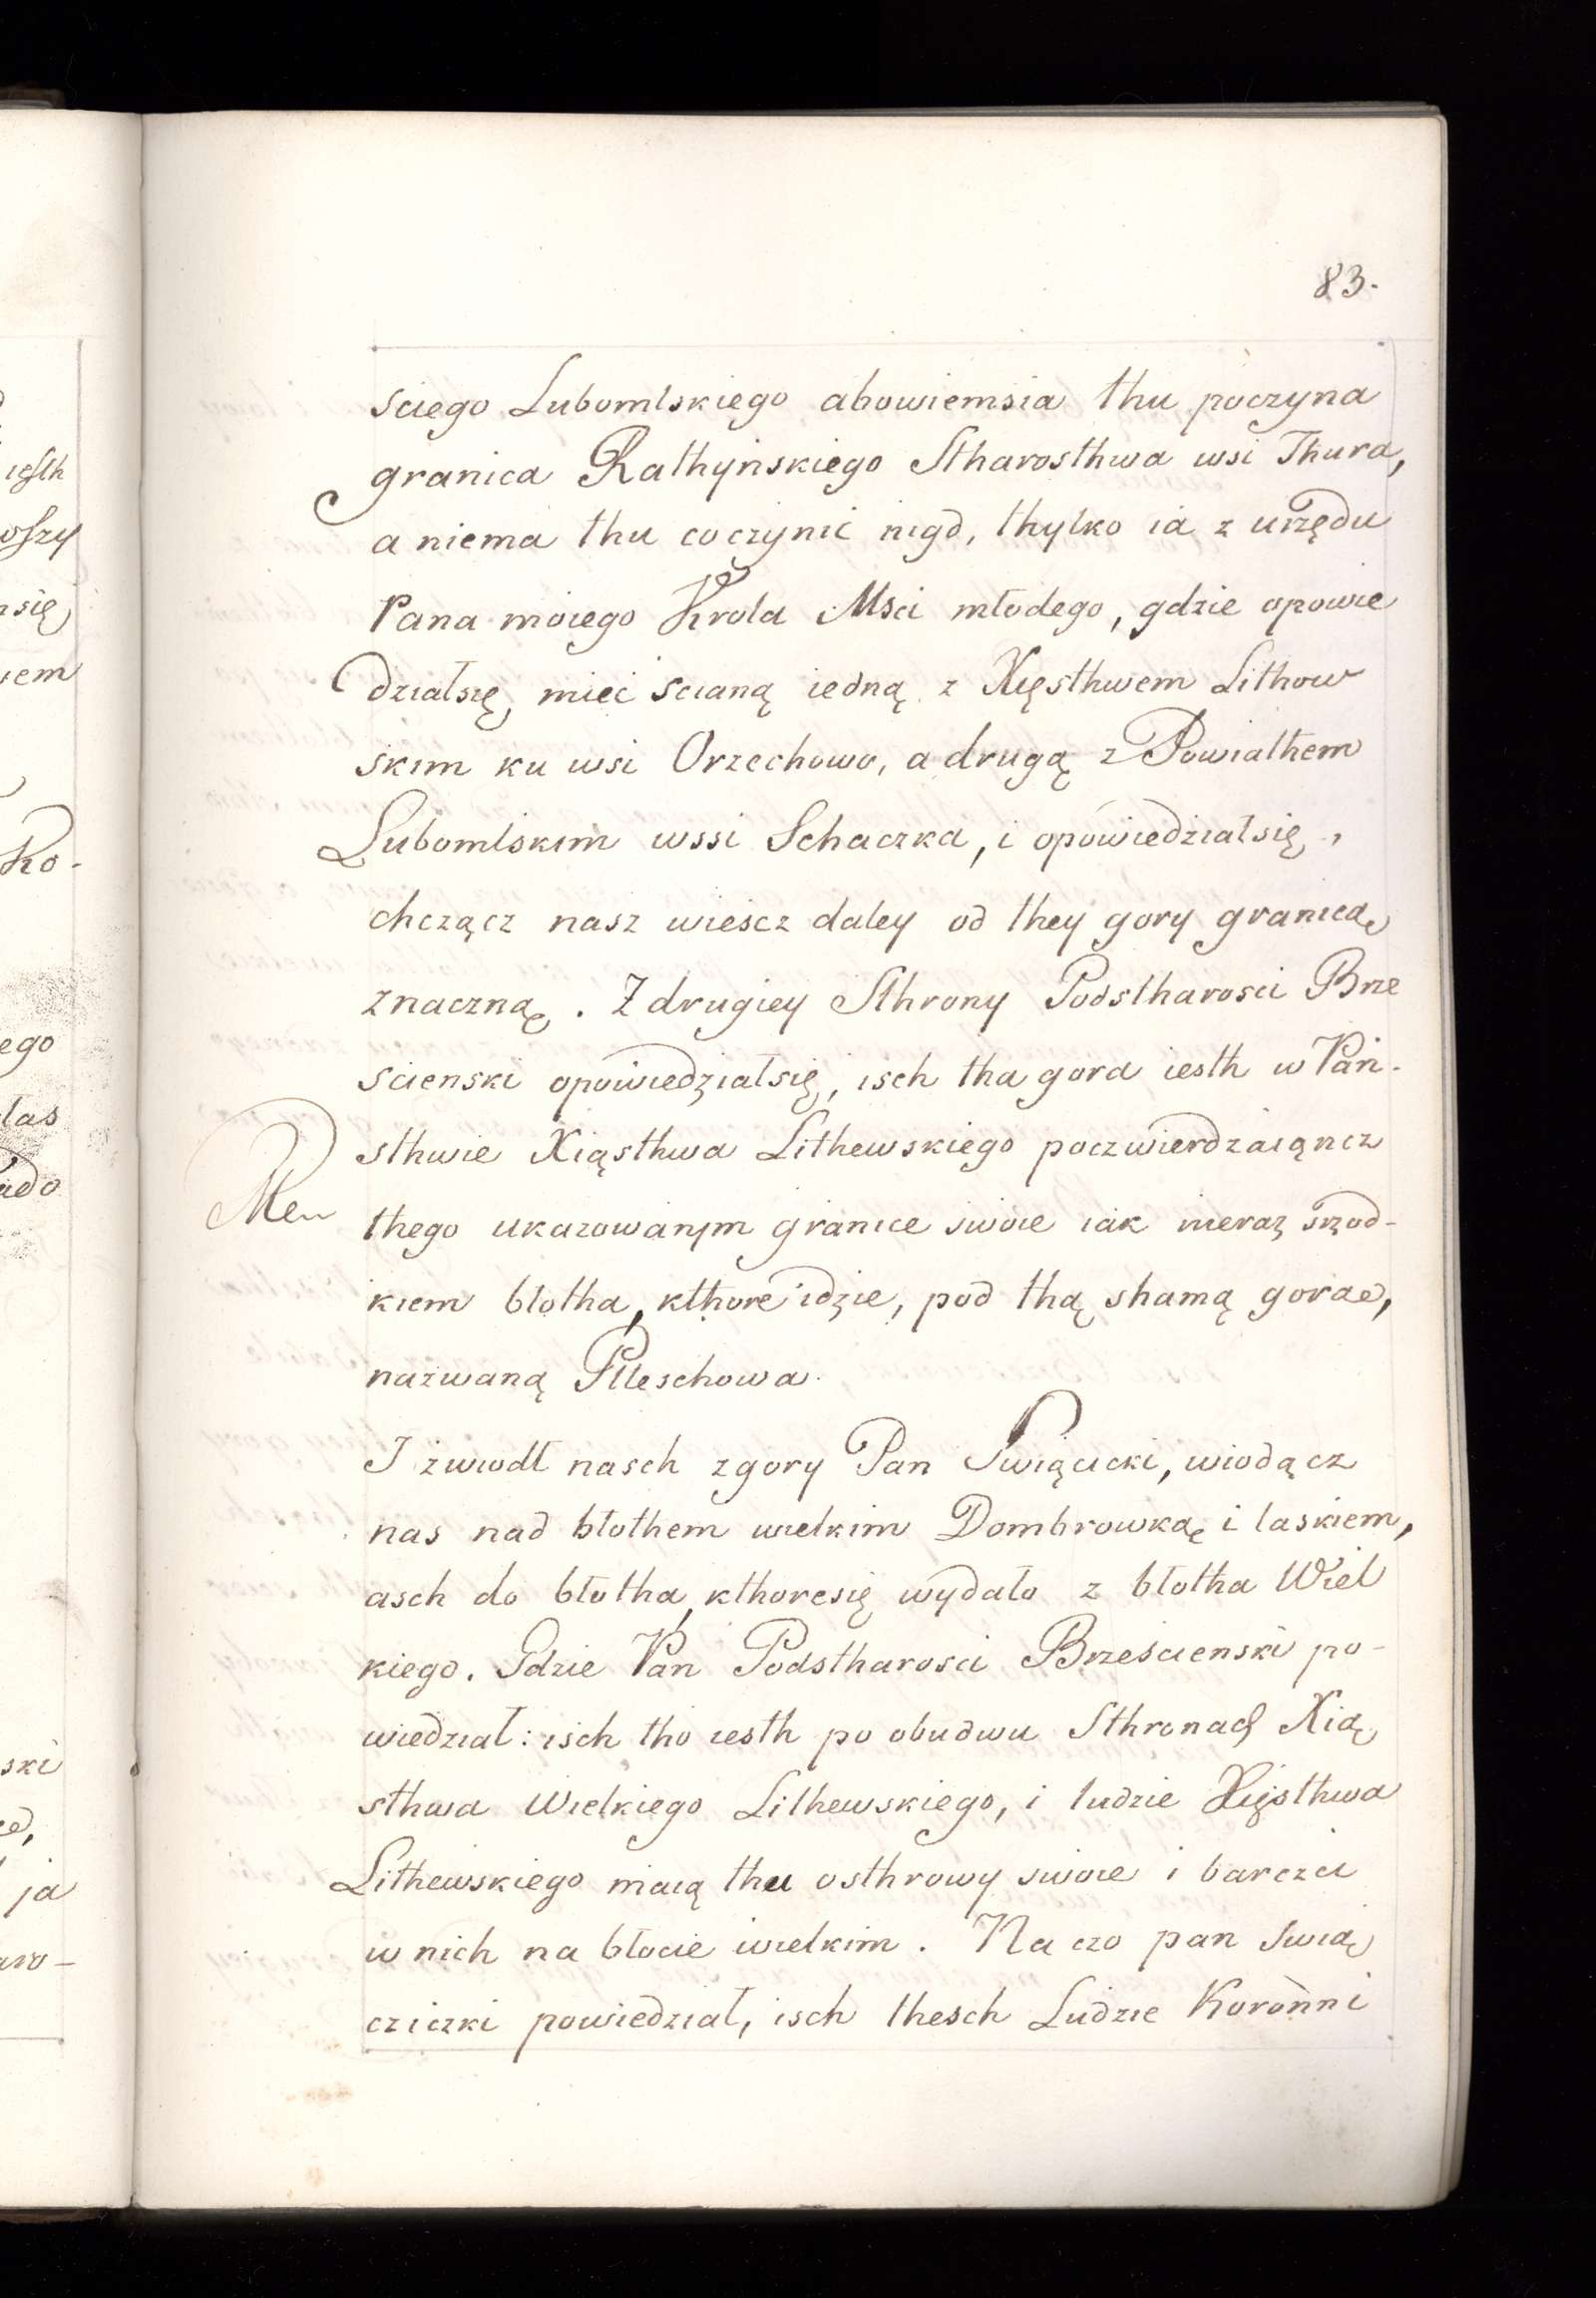 83.
sciego Lubomlskiego abowiemsia thu poczyna
granica Rathynskiego Stharosthwa wsi Thura,
a niema thu co czynic nigd, thylko ia z urzędu
Pana moiego Krola Msci młodego, gdzie opowie
działsię, mieć scianą iedną z Xięsthwem Lithow
skim ku wsi Orzechowo, a drugą z Powiathem
Lubomlskim wssi Schaczka, i opowiedziałsię,
chczącz nasz wiescz daley od they gory granicą
znaczną. Z drugiey Sthrony Podstharosci Brze
scienski opowiedziałsię, isch tha gora iesth w Pań-
sthwie Xiąsthwa Lithewskiego poczwierdzaiąncz
thego ukazowanym granice swoie iak nieraz srzod-
kiem błotha, kthore idzie, pod thą shamą gorae,
nazwaną Plleschowa.
I zwiodł nasch z gory Pan Swiącicki, wiodącz
nas nad błothem wielkim Dombrowką i laskiem,
asch do błotha, kthoresię wydało z błotha Wiel
kiego. Gdzie Pan Podstharosci Brzescienski po-
wiedział: isch tho iesth po obudwu Sthronach Xią
sthwa Wielkiego Lithewskiego, i ludzie Xięsthwa
Lithewskiego maią thu osthrowy swoie i barczci
w nich na błocie wielkim. Na czo pan Swią
cziczki powiedział, isch thesch Ludzie Koronni
iesth
oszy
się
iem
Ko-
ego
las
ado
ski
ja